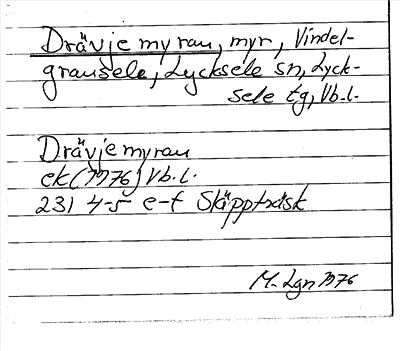 Drävjemyran, myr, Vindel-
gransele, Lycksele sn, Lyck-
sele tg, Vb.l.
Drävjemyran
ek (1976) Vb.l.
231 4-5 e-f Skäppträsk
M. Lgn 1976